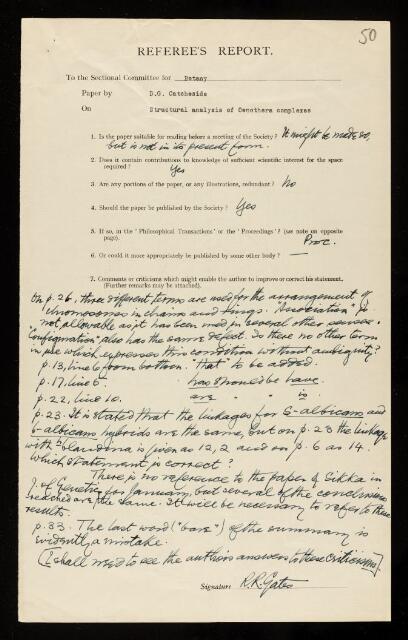 50
REFEREE'S REPORT.
To the Sectional Committee for Botany
Paper by D.G. Catcheside
On Structural analysis of Oenothera complexes
1. Is the paper suitable for reading before a meeting of the Society? It might be made so,
but is not in its present form.
2. Does it contain contributions to knowledge of sufficient scientific interest for the space
required? Yes
3. Are any portions of the paper, or any illustrations, redundant? No
4. Should the paper be published by the Society? Yes
5. If so, in the 'Philosophical Transactions' or the 'Proceedings'? (see note on opposite
page). Proc.
6. Or could it more appropriately be published by some other body? —
7. Comments or criticisms which might enable the author to improve or correct his statement.
(Further remarks may be attached).
On p. 26, three different terms are used for the arrangement of
chromosomes in chains and rings. "Association" is
not allowable as it has been used in several other senses.
"Configuration" also has the same defect. Is there no other term
in use which expresses this condition without ambiguity?
p. 13, line 6 from bottom. "That" to be added.
p. 17, line 5. has should be have.
p. 22, line 10. are " " is.
p. 23. It is stated that the linkages for S-albicans and
b-albicans hybrids are the same, but on p. 23 the linkage
with blandina is given as 12, 2 and on p. 6 as 14.
Which statement is correct?
There is no reference to the paper of Sikka in
J. of Genetics for January, but several of the conclusions
reached are the same. It will be necessary to refer to these
results.
p. 33. The last word ("bare") of the summary is
evidently a mistake.
(I shall need to see the author's answers to these criticisms).
Signature R.R. Gates